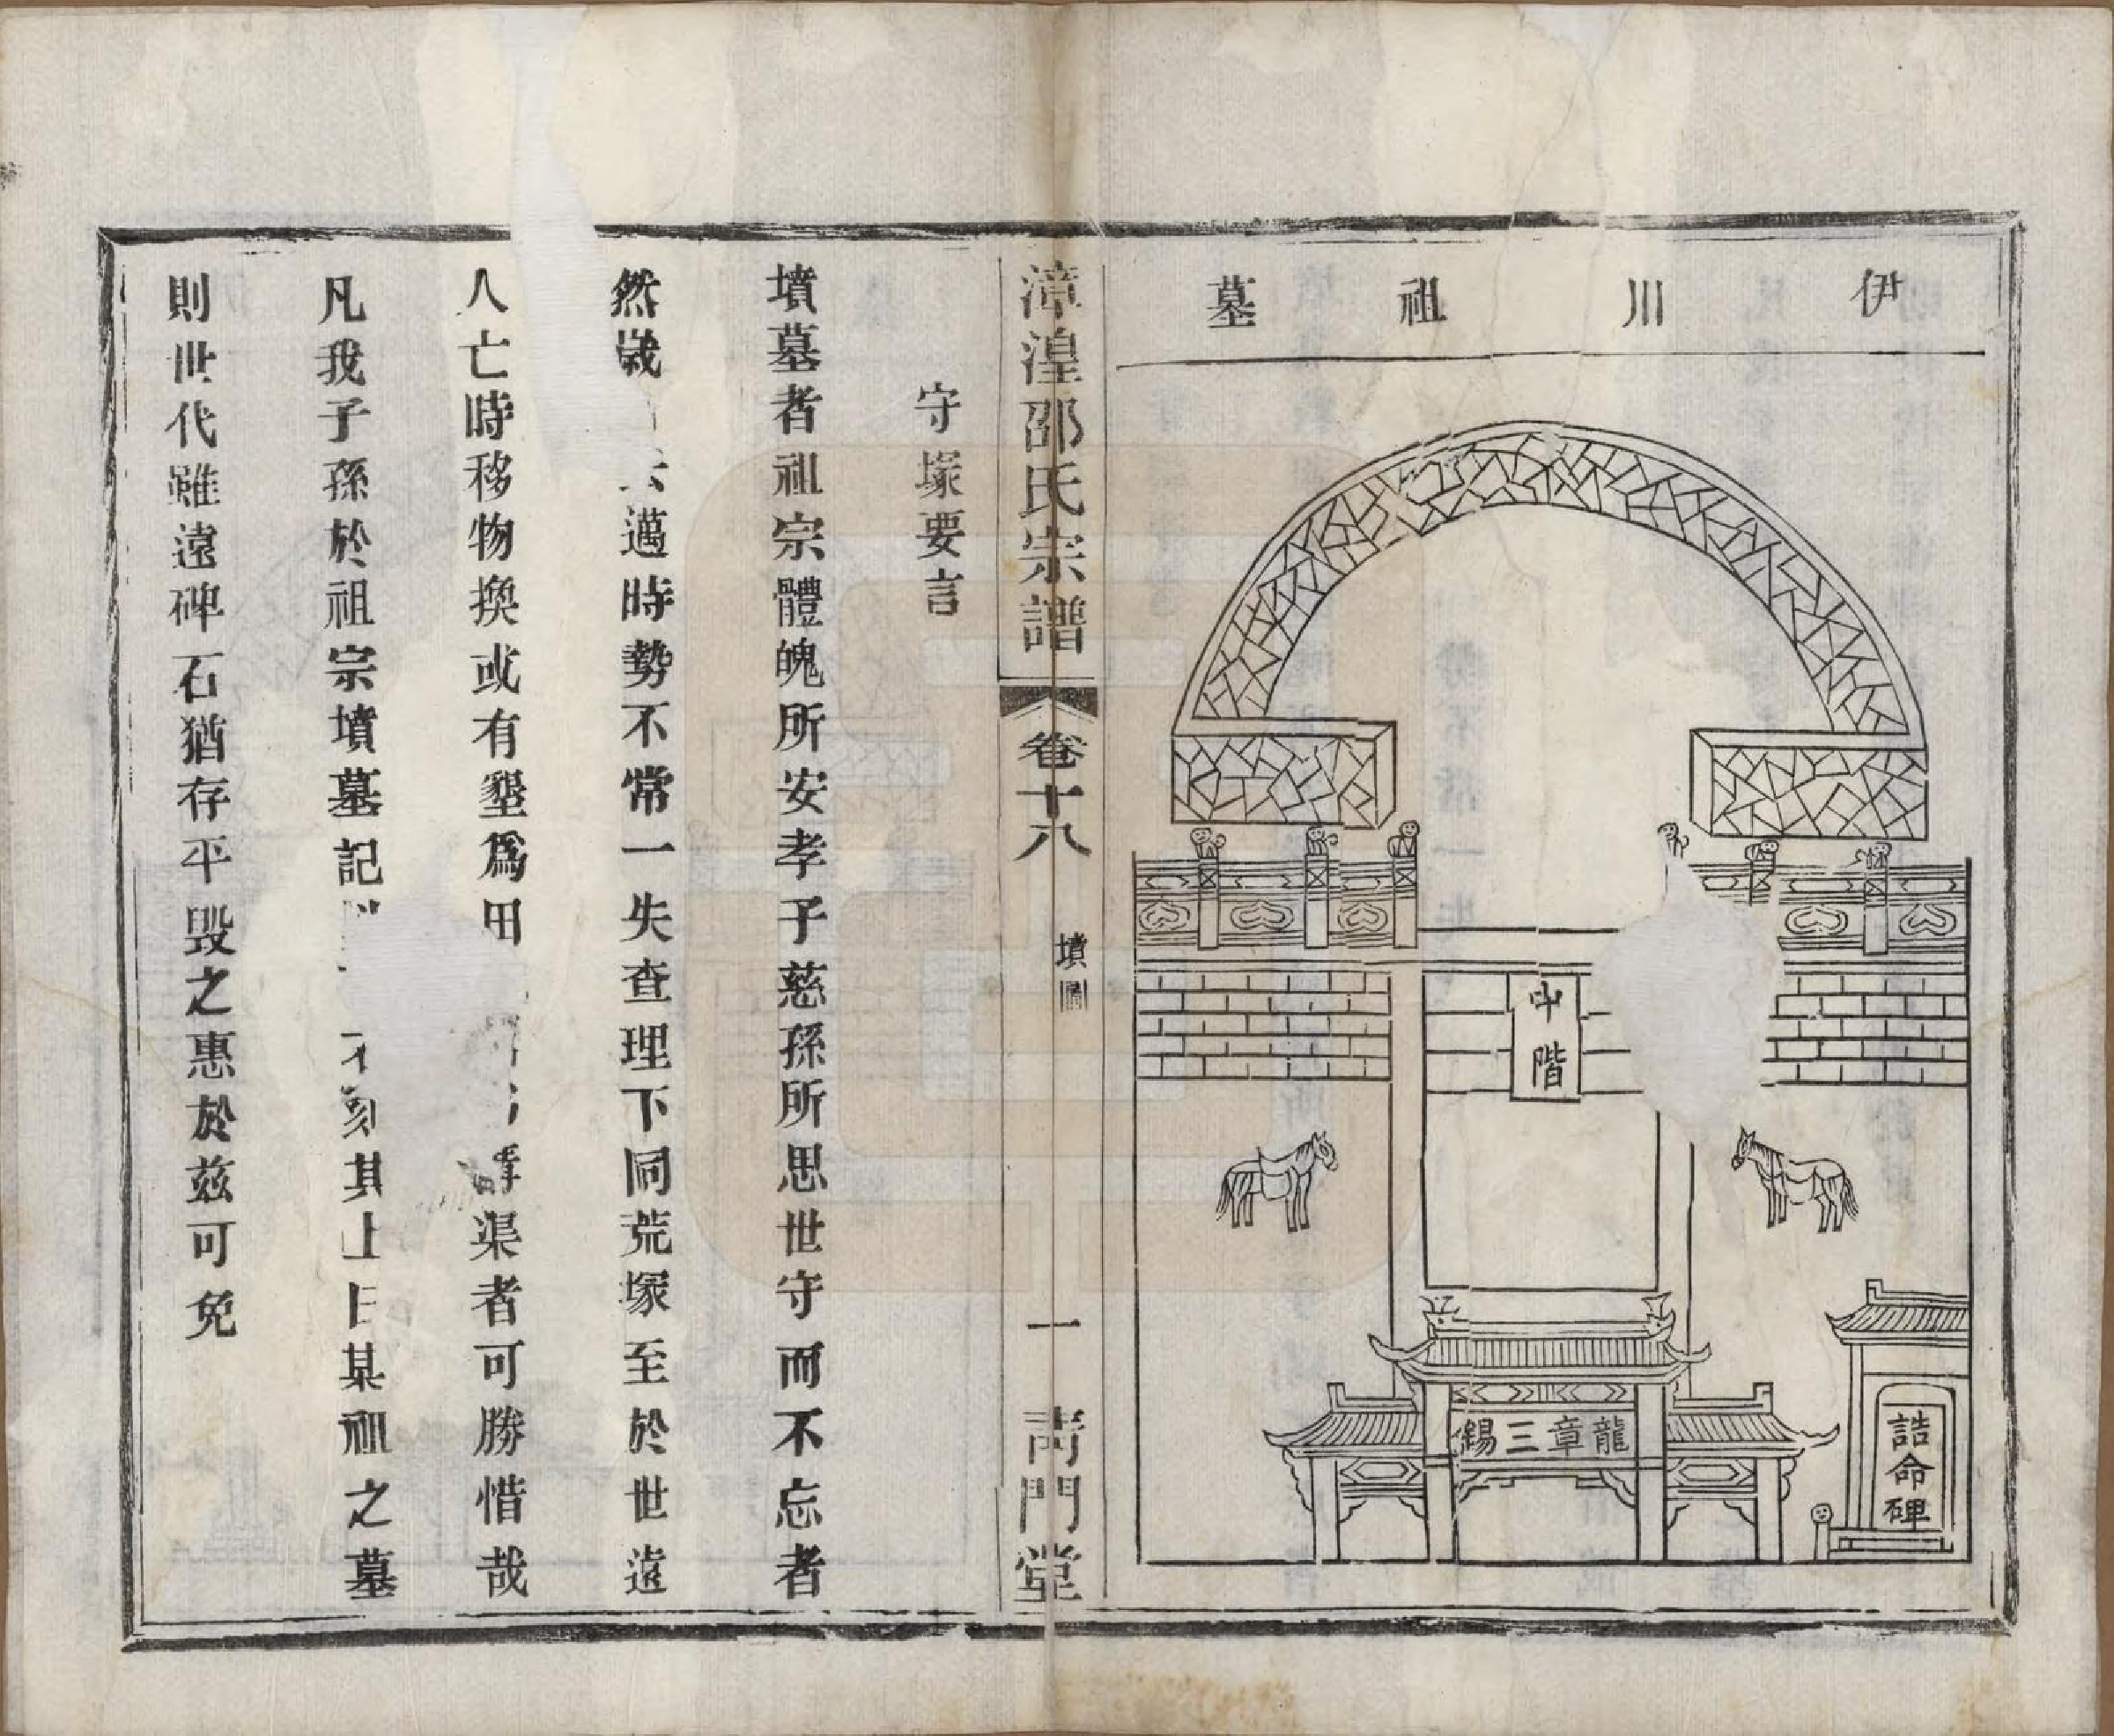 伊川祖墓
中階
龍章三錫
誥命碑
漳湟邵氏宗譜
卷十八
墳圖
一
靑門堂
守塚要言
墳墓者祖宗體魄所安孝子慈孫所思世守而不忘者
然歲去邁時勢不常一失查理下同荒塚至於世遠
人亡時移物換或有墾爲田渠者可勝惜哉
凡我子孫於祖宗墳墓記刻其上曰某祖之墓
則世代雖遠碑石猶存平毀之惠於兹可免